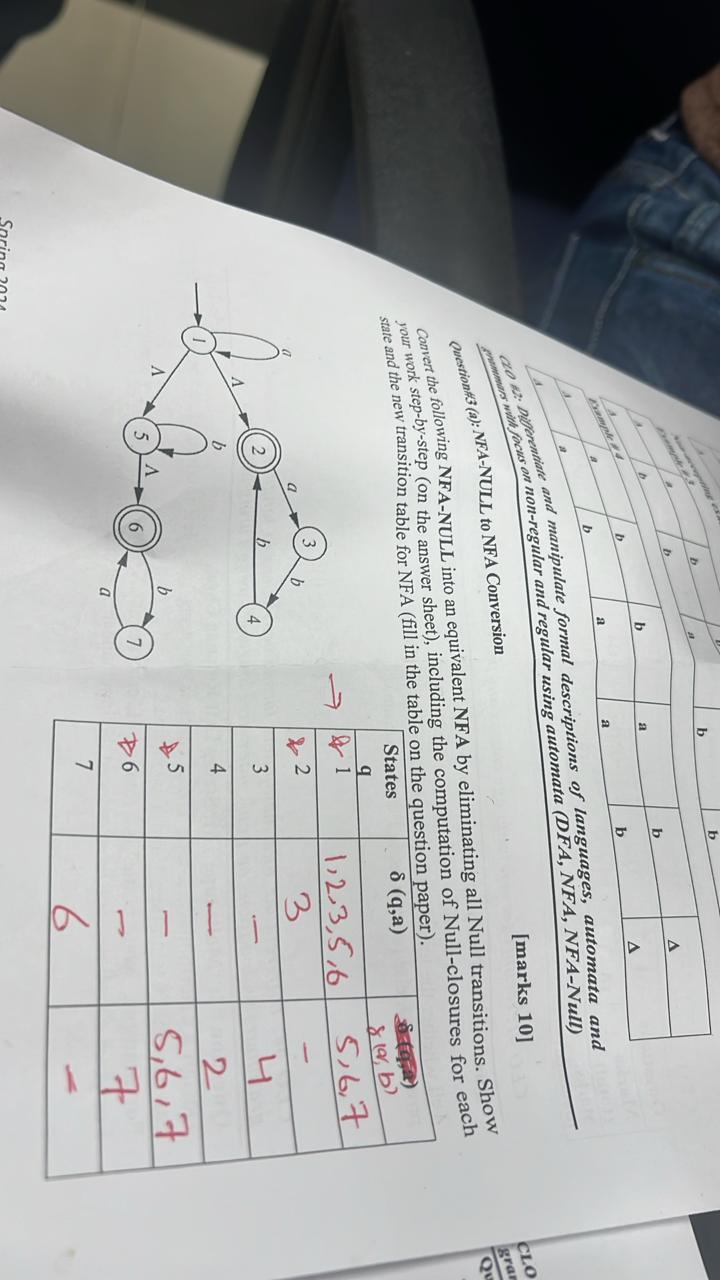 b
b
b
a
b
Δ
b
a
b
Δ
a
b
a
a
b
Δ
CLO #2: Differentiate and manipulate formal descriptions of languages, automata and
grammars with focus on non-regular and regular using automata (DFA, NFA, NFA-Null)
Question#3 (a): NFA-NULL to NFA Conversion [marks 10]
Convert the following NFA-NULL into an equivalent NFA by eliminating all Null transitions. Show
your work step-by-step (on the answer sheet), including the computation of Null-closures for each
state and the new transition table for NFA (fill in the table on the question paper).
a
3
a
b
1
Λ
2
b
4
Λ
b
5
Λ
6
b
a
7
States q δ (q,a) δ (q,b)
→ 1 1,2,3,5,6 5,6,7
2 3 -
3 - 4
4 - 2
5 - 5,6,7
6 - 7
7 6 -
Spring 2024
CLO
gra
Qu